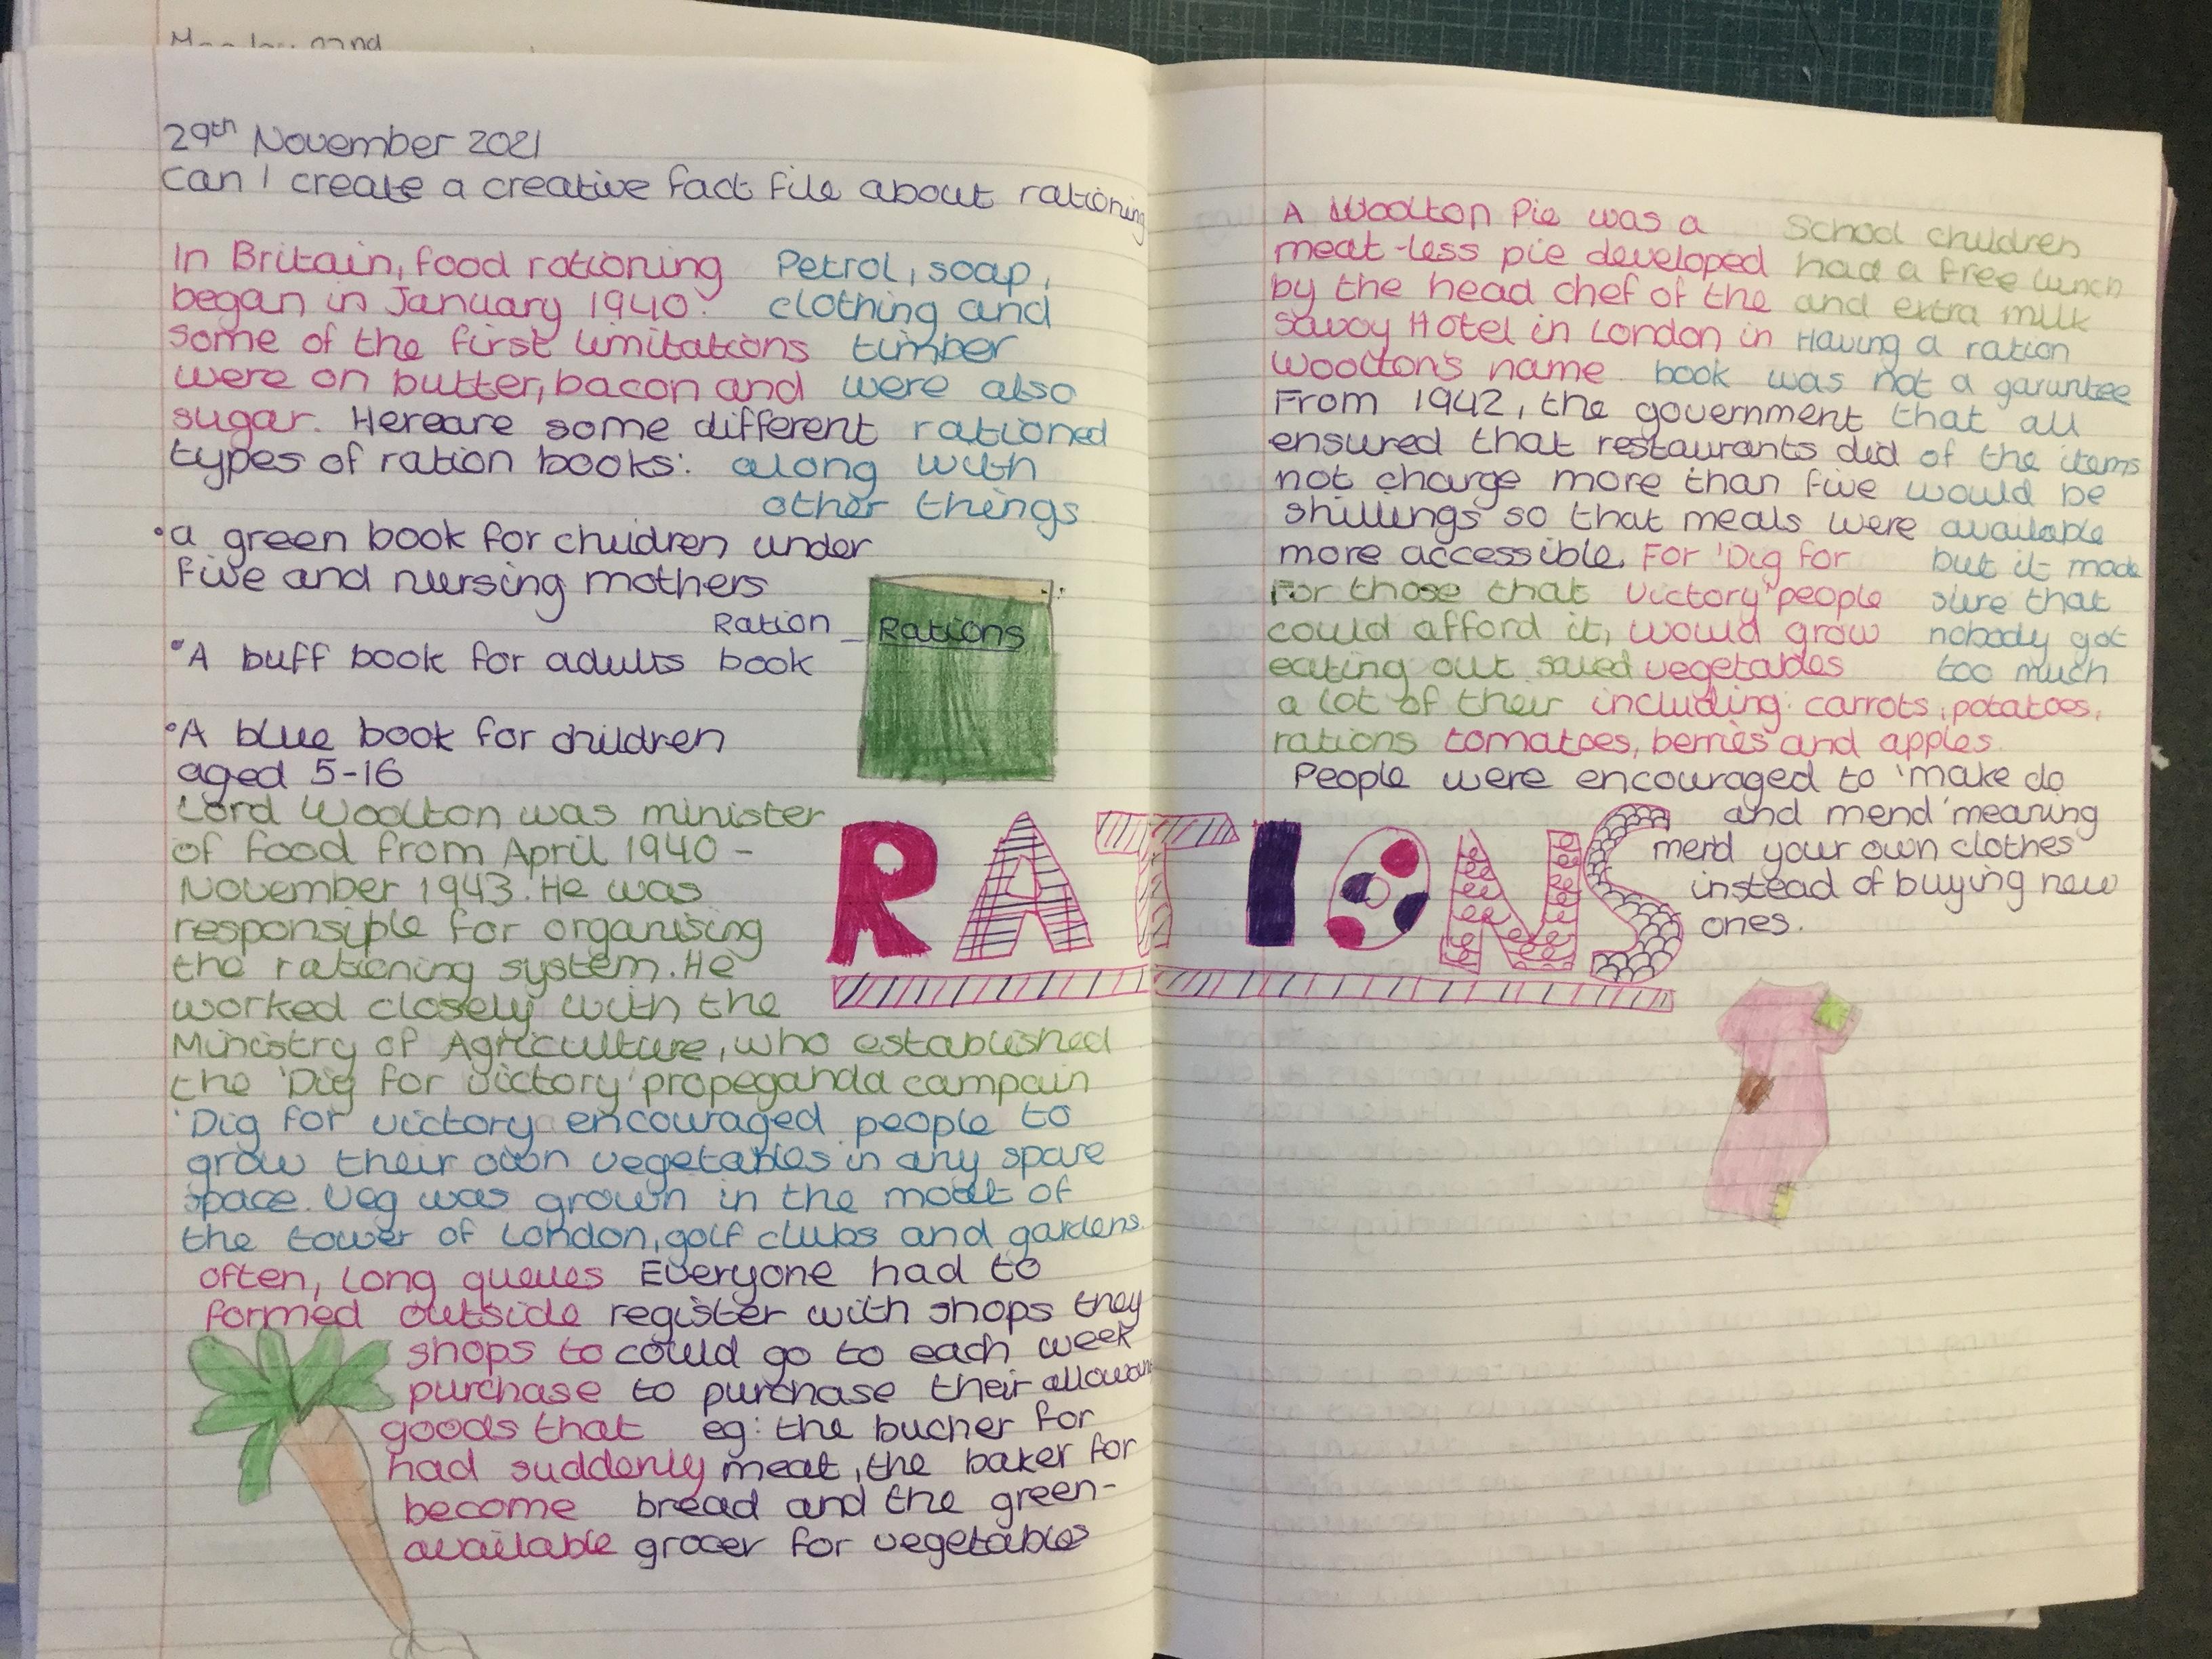 29th November 2021
Can I create a creative fact file about rationing
In Britain, food rationing
began in January 1940.
Some of the first limitations
were on butter, bacon and
sugar. Here are some different
types of ration books:
Petrol, soap,
clothing and
timber
were also
rationed
along with
other things
•a green book for children under
five and nursing mothers
•A buff book for adults
Ration
book
Rations
•A blue book for children
aged 5-16
Lord Woolton was minister
of food from April 1940 -
November 1943. He was
responsible for organising
the rationing system. He
worked closely with the
Ministry of Agriculture, who established
the 'Dig for victory' propeganda campain
'Dig for victory encouraged people to
grow their own vegetables in any spare
space. Veg was grown in the moat of
the tower of London, golf clubs and gardens.
often, long queues
formed outside
shops to
purchase
goods that
had suddenly
become
available
Everyone had to
register with shops they
could go to each week
to purchase their
eg: the bucher for
meat, the baker for
bread and the green-
grocer for vegetables
RATIONS
A Woolton Pie was a
meat-less pie developed
by the head chef of the
Savoy Hotel in London in
Woolton's name
School children
had a free lunch
and extra milk
Having a ration
book was not a garuntee
that all
of the items
would be
available
but it made
sure that
nobody got
too much
From 1942, the government
ensured that restaurants did
not charge more than five
shillings so that meals were
more accessible.
For those that
could afford it,
eating out saved
a lot of their
rations
For 'Dig for
Victory' people
would grow
vegetables
including: carrots, potatoes,
tomatoes, berries and apples.
People were encouraged to 'make do
and mend' meaning
mend your own clothes
instead of buying new
ones.